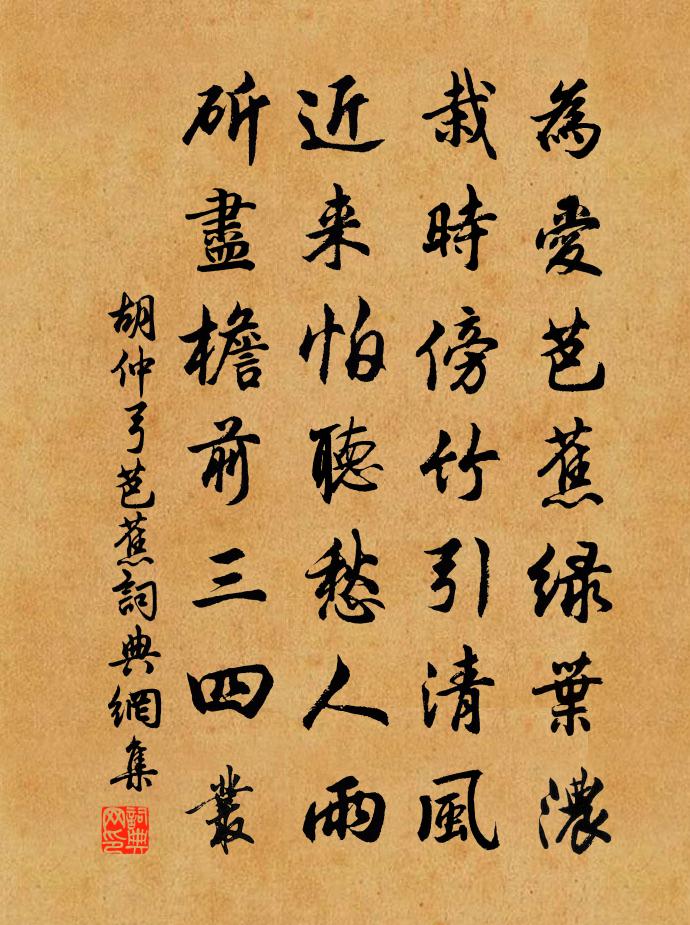 為愛芭蕉緑葉濃
栽時傍竹引清風
近来怕聽愁人雨
斫盡檐前三四叢
胡仲弓芭蕉詞典網集
詞典网印